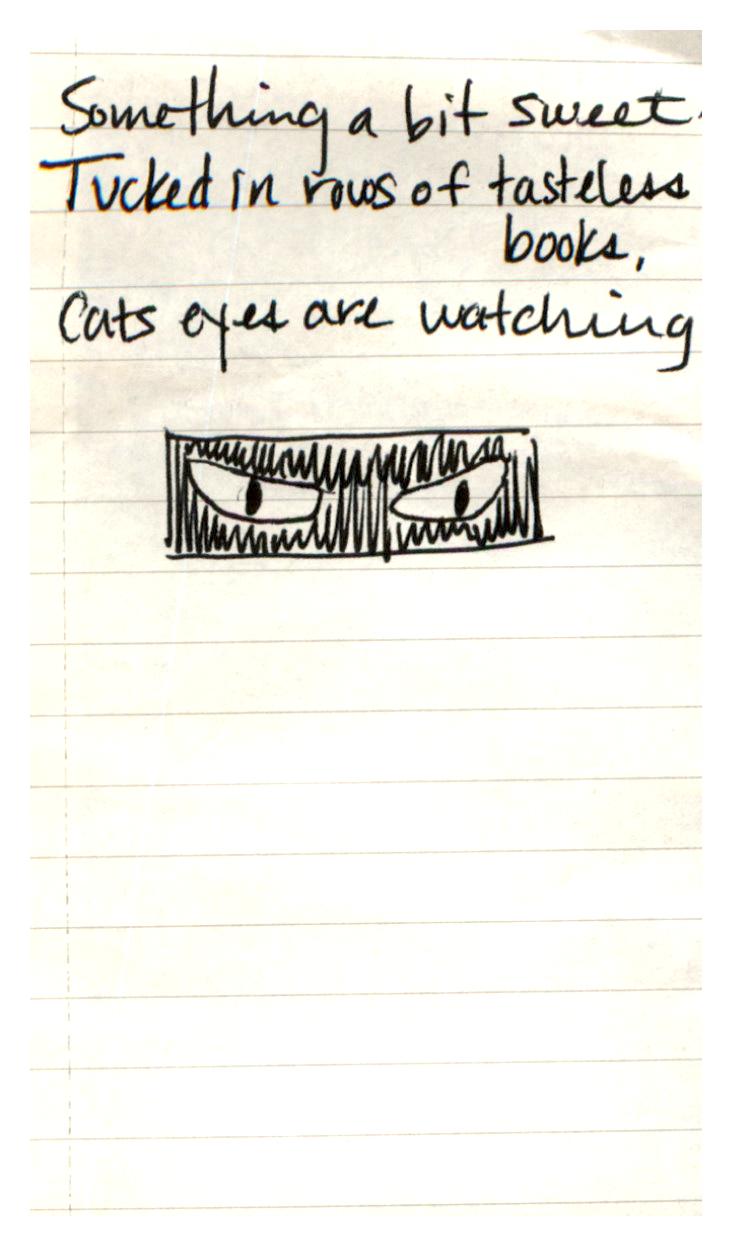 Something a bit sweet.
Tucked in rows of tasteless
books,
Cats eyes are watching